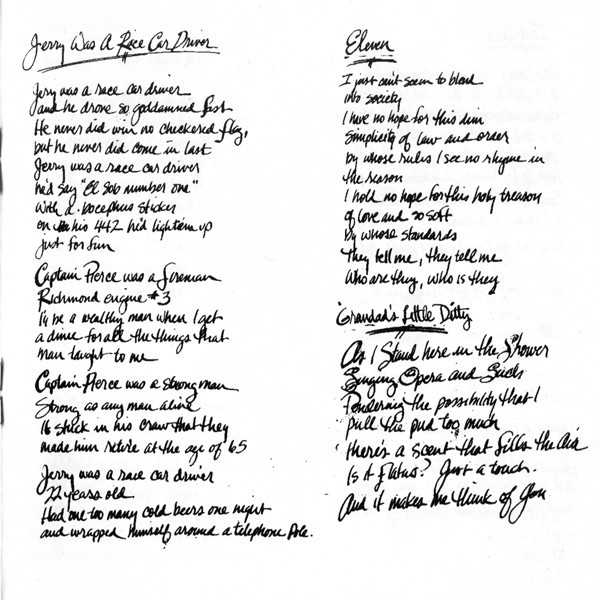 Jerry Was A Race Car Driver
Jerry was a race car driver
and he drove so goddamned fast
He never did win no checkered flag,
but he never did come in last
Jerry was a race car driver
he'd say "El Solo number one"
With a bocephus sticker
on his 442 he'd light'em up
just for fun
Captain Pierce was a fireman
Richmond engine #3
I'd be a wealthy man when I get
a dime for all the things that
man taught to me
Captain Pierce was a strong man
Strong as any man alive
It stuck in his craw that they
made him retire at the age of 65
Jerry was a race car driver
22 years old
Had one too many cold beers one night
and wrapped himself around a telephone Pole.
Eleven
I just can't seem to blend
into society
I have no hope for this dim
simplicity of law and order
by whose rules I see no rhyme in
the reason
I hold no hope for this holy treason
of love and so soft
by whose standards
They tell me, they tell me
Who are they, who is they
Grandad's Little Ditty
As I Stand here in the Shower
Singing Opera and Such
Pondering the possibility that I
pull the pud too much
there's a scent that fills the air
Is it flatus? Just a touch.
And it makes me think of You